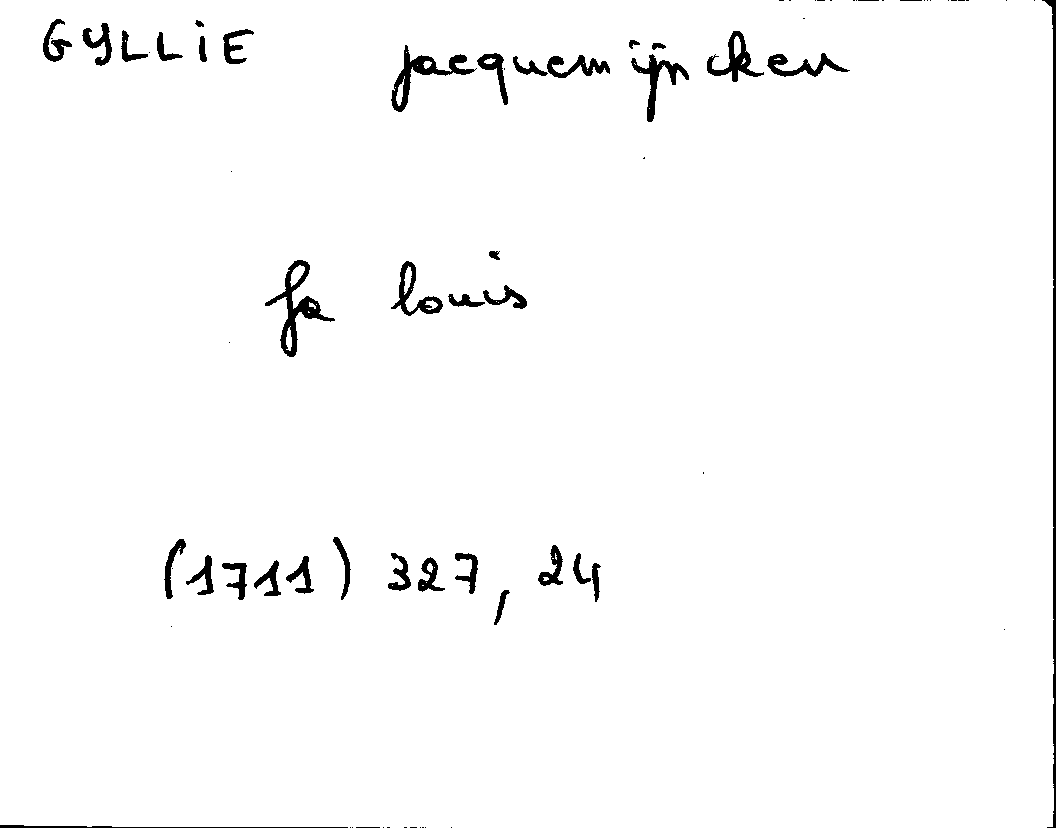 GYLLIE jacquemijncken
fa louis
(1711) 327, 24